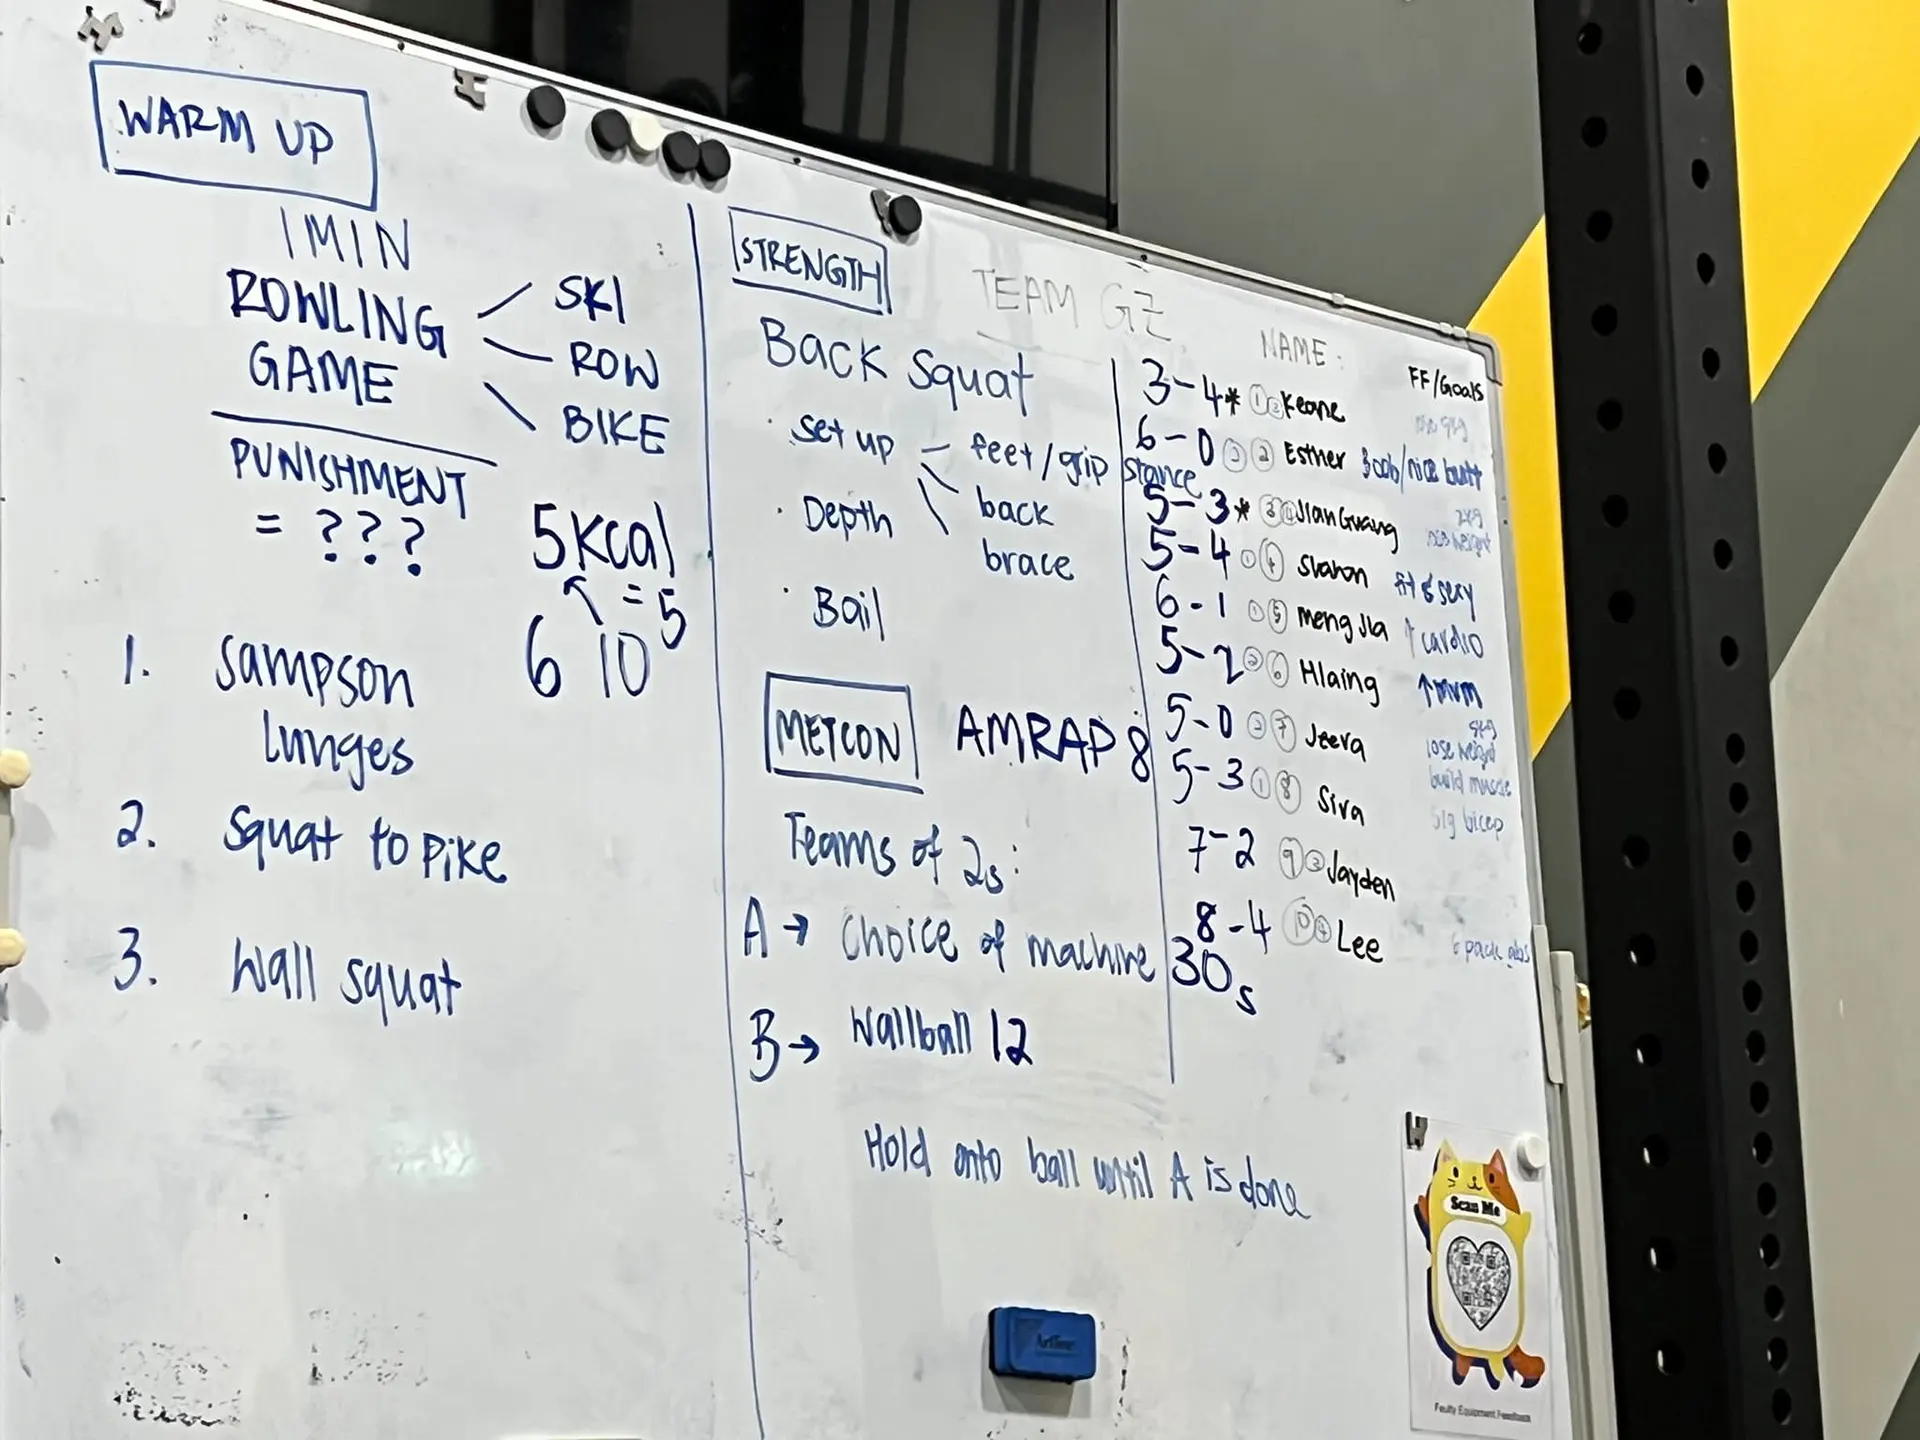 WARM UP
1 MIN
ROWLING
GAME
SKI
ROW
BIKE
PUNISHMENT
= ???
5Kcal
= 5
6 10
1. Sampson
lunges
2. Squat to pike
3. Wall squat
STRENGTH
Back Squat
· Set up – feet/grip stance
back
brace
· Depth
· Bail
METCON AMRAP 8
Teams of 2s:
A → Choice of machine 30s
B → Wallball 12
Hold onto ball until A is done
TEAM GZ
NAME: FF/Goals
3-4* ① ② Keane
6-0 ② Esther 300b/nice butt
5-3* ③ ④ JianGuang 2kg
5-4 ① ④ Sharon fit & sexy
6-1 ① ⑤ Meng Jia ↑ cardio
5-2 ② ⑥ Hlaing ↑ mvm
5-0 ⑦ Jeeva 5kg
lose weight
build muscle
5-3 ① ⑧ Siva big bicep
7-2 ⑨ ③ Jayden
8-4 ⑩ ④ Lee 6 pack abs
Scan Me
Faulty Equipment Feedback
Artline